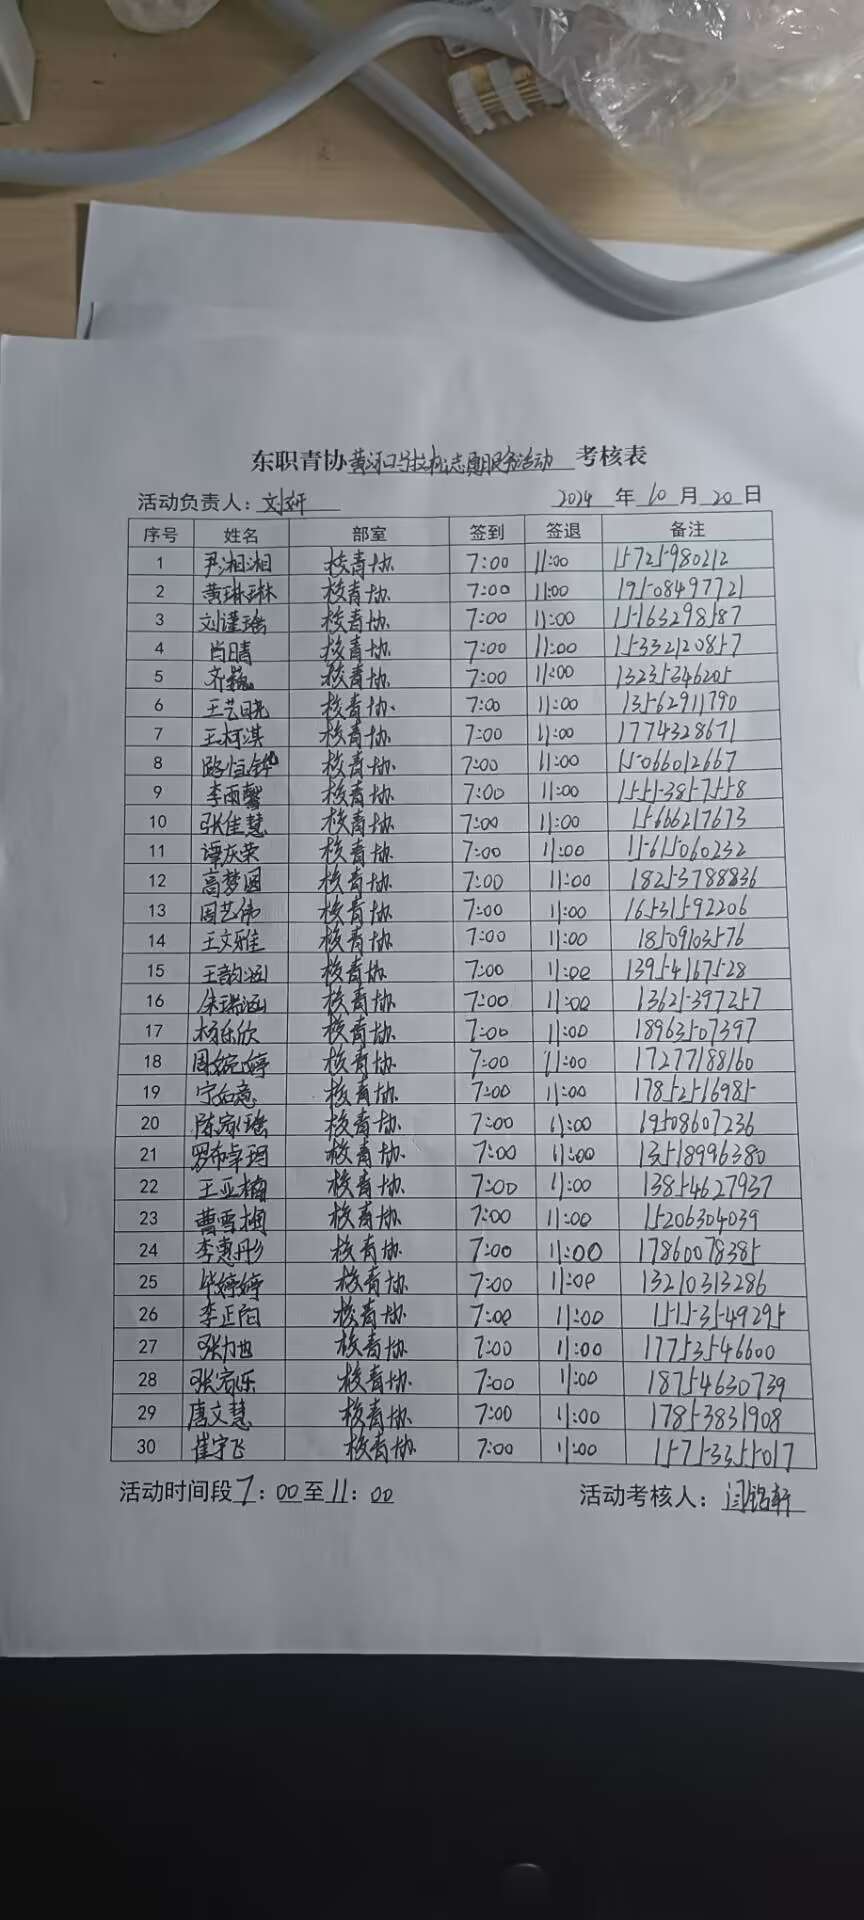 东职青协黄河口马拉松志愿服务活动 考核表
活动负责人：刘妍 2024 年 10 月 20 日
序号 姓名 部室 签到 签退 备注
1 尹湘湘 校青协 7:00 11:00 15725980212
2 黄琳琳 校青协 7:00 11:00 19508497721
3 刘谨瑶 校青协 7:00 11:00 15163298587
4 肖晴 校青协 7:00 11:00 15332120857
5 齐巍 校青协 7:00 11:00 13235346205
6 王艺晓 校青协 7:00 11:00 13562911790
7 王柯淇 校青协 7:00 11:00 1774328671
8 路恒铧 校青协 7:00 11:00 15066012667
9 李雨馨 校青协 7:00 11:00 15513857558
10 张佳慧 校青协 7:00 11:00 15666217673
11 谭庆荣 校青协 7:00 11:00 15615060232
12 高梦圆 校青协 7:00 11:00 18253788836
13 周艺伟 校青协 7:00 11:00 16531592206
14 王文雅 校青协 7:00 11:00 18509103576
15 王韵涵 校青协 7:00 11:00 13954167528
16 朱瑞涵 校青协 7:00 11:00 13625397257
17 杨乐欣 校青协 7:00 11:00 18963507397
18 周婉婷 校青协 7:00 11:00 17277188160
19 宁如意 校青协 7:00 11:00 17852516985
20 陈家瑶 校青协 7:00 11:00 19508607236
21 罗布卓玛 校青协 7:00 11:00 13518996380
22 王亚楠 校青协 7:00 11:00 13854627937
23 曹雪 校青协 7:00 11:00 15206304039
24 李惠彤 校青协 7:00 11:00 17860078385
25 毕婷婷 校青协 7:00 11:00 13210313286
26 李正阳 校青协 7:00 11:00 15153549295
27 张力旭 校青协 7:00 11:00 17753546600
28 张家乐 校青协 7:00 11:00 18754630739
29 唐文慧 校青协 7:00 11:00 17853831908
30 崔宇飞 校青协 7:00 11:00 15753355017
活动时间段 7：00 至 11：00 活动考核人：闫铭轩